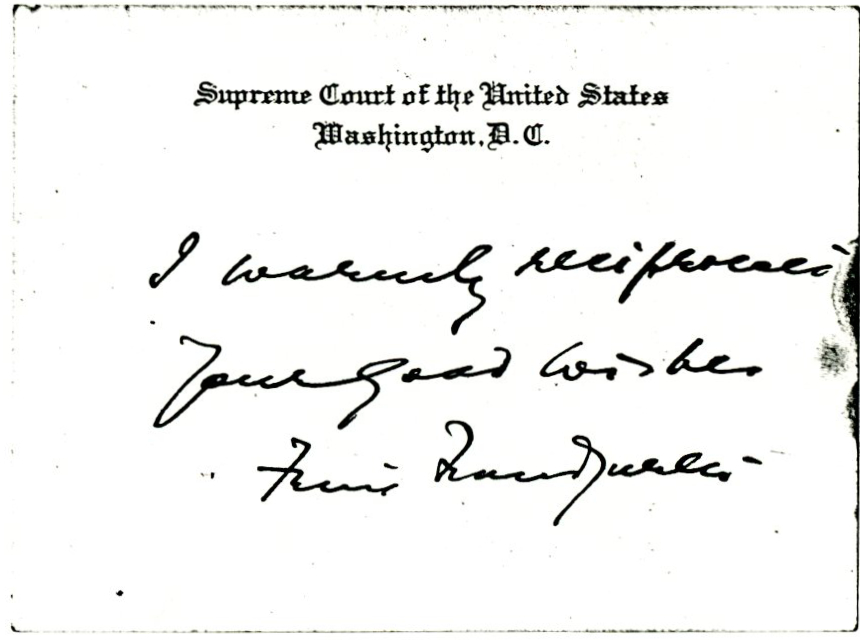 Supreme Court of the United States
Washington, D.C.
I warmly reciprocate
your good wishes
Felix Frankfurter